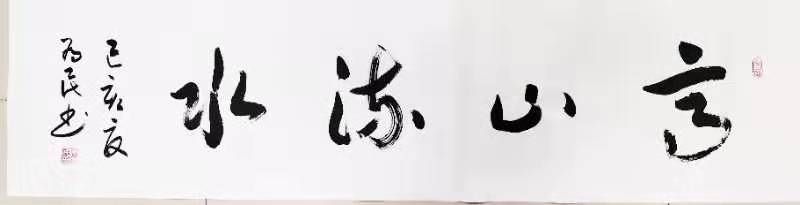 高山流水
己亥夏
为民书